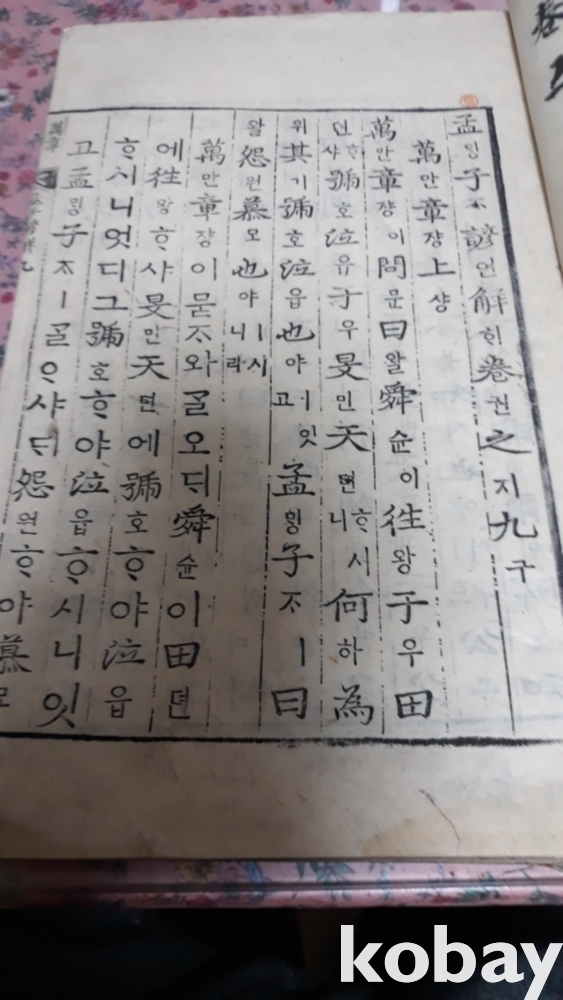 孟ᄆᆡᆼ子ᄌᆞ諺언解ᄒᆡ卷권之지九구
萬만章쟝上샹
萬만章쟝이問문曰왈舜슌이往왕于우田
뎐ᄒᆞ샤號호泣읍于우旻민天텬ᄒᆞ시니何하爲
위其기號호泣읍也야ㅣ잇고孟ᄆᆡᆼ子ᄌᆞㅣ曰
왈怨원慕모也야ㅣ시니라
萬만章쟝이묻ᄌᆞ와ᄀᆞᆯ오ᄃᆡ舜슌이田뎐
에往왕ᄒᆞ샤旻민天텬에號호ᄒᆞ야泣읍
ᄒᆞ시니엇디그號호ᄒᆞ야泣읍ᄒᆞ시니잇
고孟ᄆᆡᆼ子ᄌᆞㅣᄀᆞᆯᄋᆞ샤ᄃᆡ怨원ᄒᆞ야慕모
kobay